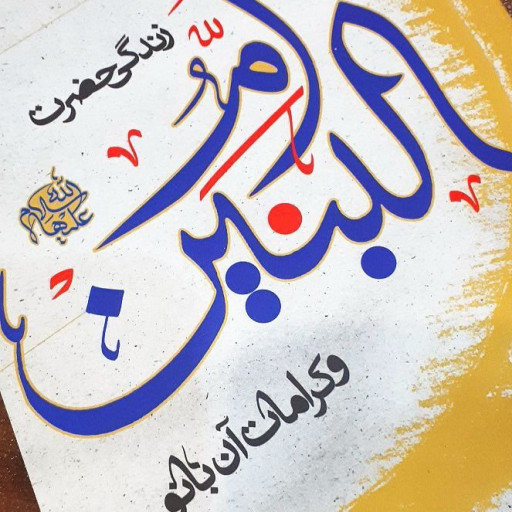 زندگی حضرت
ام البنین
سلام الله علیها
و کرامات آن بانو